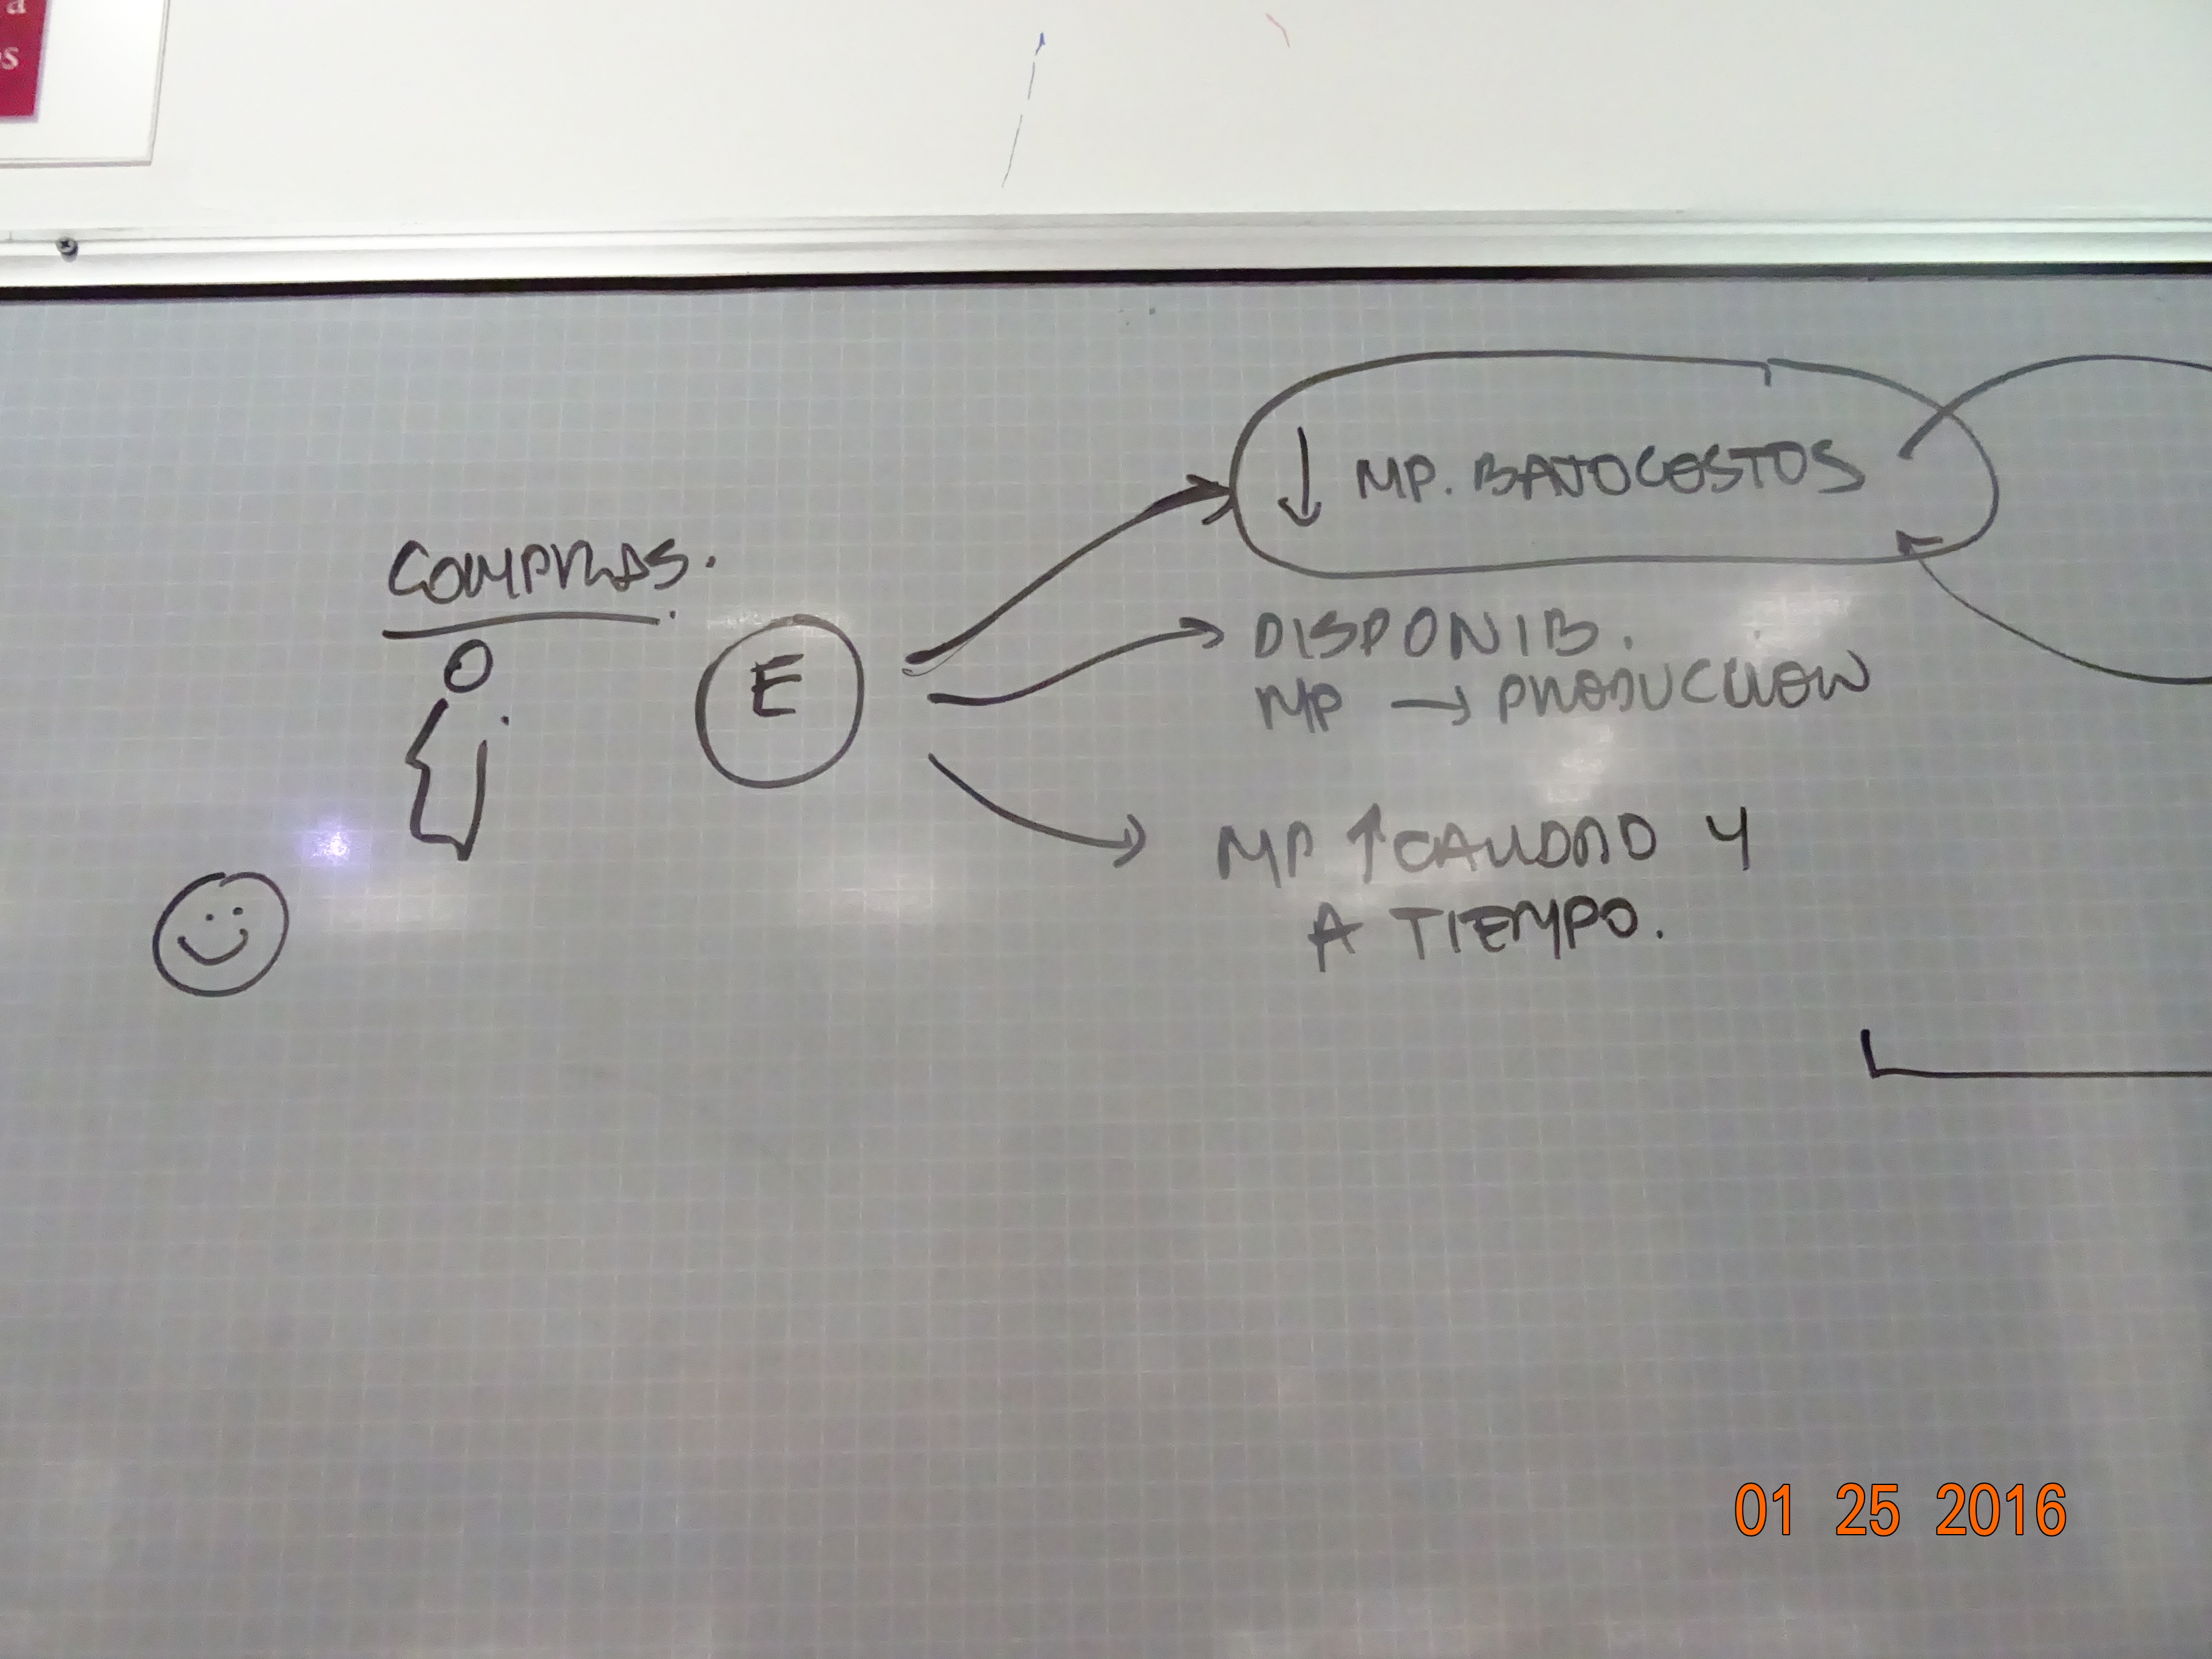 a
os
COMPRAS.
E
↓ MP. BAJO COSTOS
DISPONIB.
MP → PRODUCCION
MP ↑ CALIDAD Y
A TIEMPO.
01 25 2016